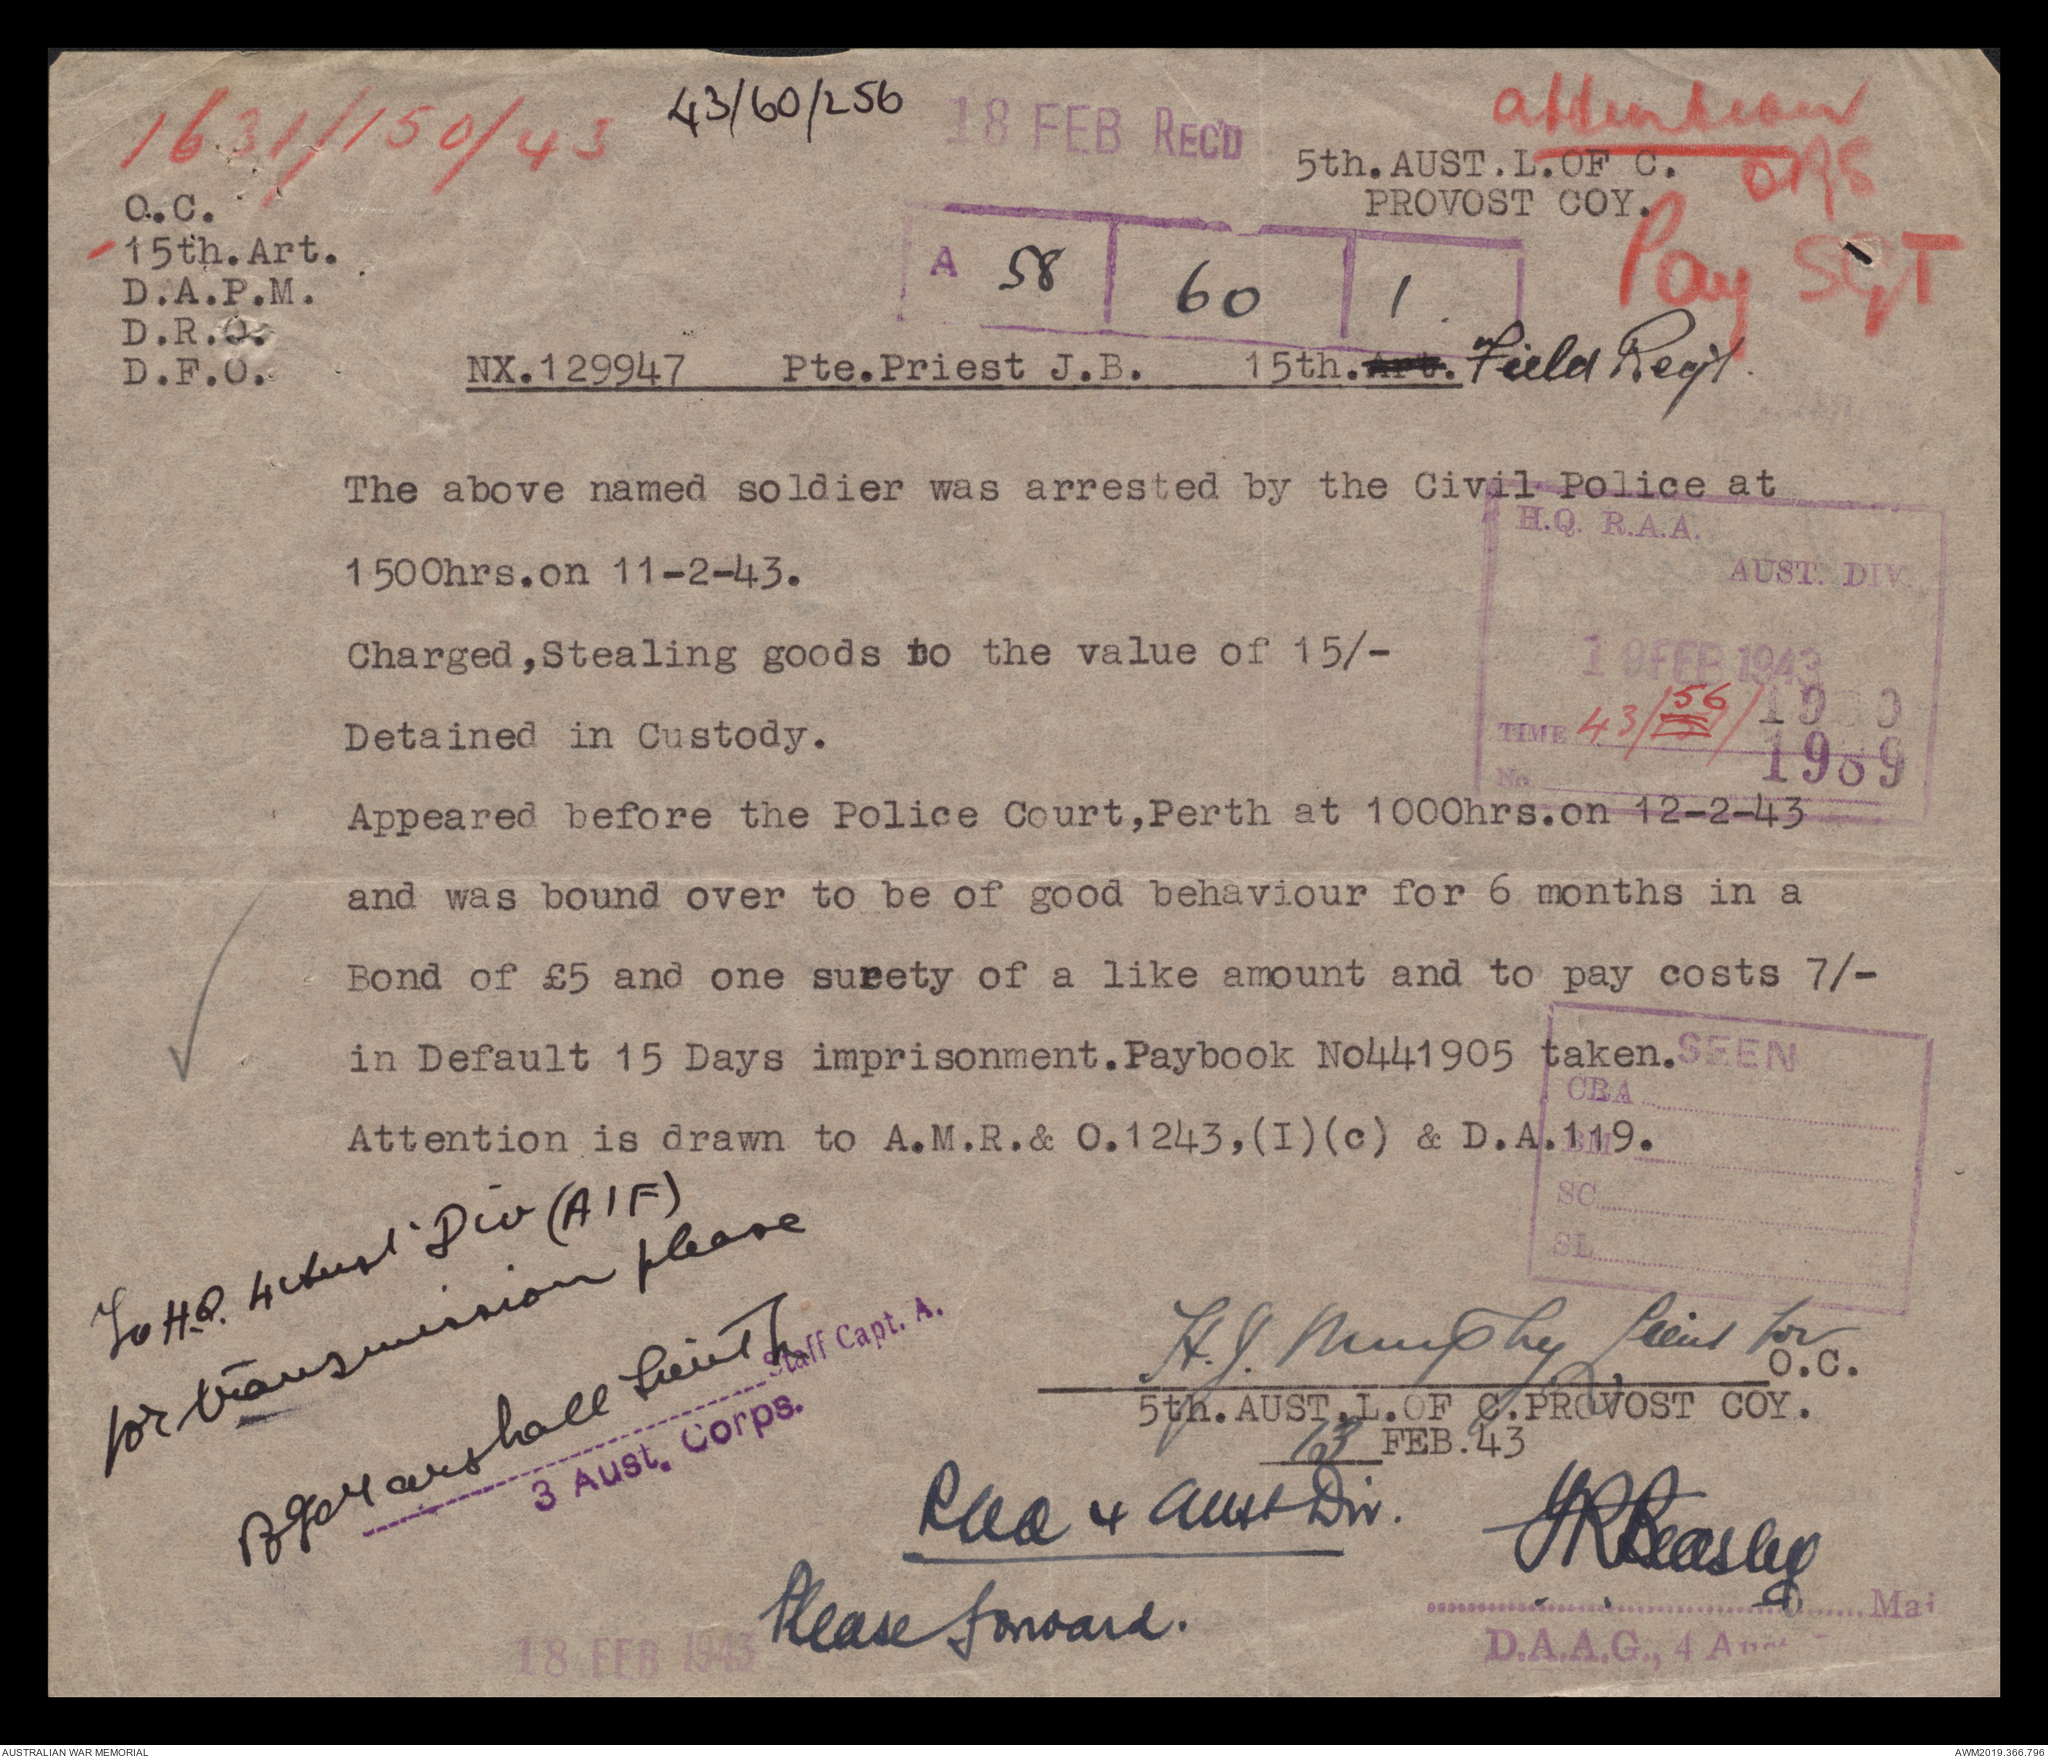 1631/150/43
43/60/256
18 FEB REC'D
attention
ORS
Pay SGT
5th.AUST.L.OF C.
PROVOST COY.
O.C.
15th.Art.
D.A.P.M.
D.R.O.
D.F.O.
A 58 60 1
NX.129947 Pte.Priest J.B. 15th.Art. Field Regt.
The above named soldier was arrested by the Civil Police at
1500hrs.on 11-2-43.
Charged,Stealing goods to the value of 15/-
Detained in Custody.
Appeared before the Police Court,Perth at 1000hrs.on 12-2-43
and was bound over to be of good behaviour for 6 months in a
Bond of £5 and one surety of a like amount and to pay costs 7/-
in Default 15 Days imprisonment.Paybook No441905 taken.
Attention is drawn to A.M.R.& O.1243,(I)(c) & D.A.119.
H.Q. R.A.A.
AUST. DIV.
19 FEB 1943
TIME 43/56/
No. 1989
SEEN
CRA
BM
SC
SL
To H.Q. 4 Aust Div (AIF)
for transmission please
Marshall Lieut
Staff Capt. A.
3 Aust. Corps.
H.J. Murphy Lieut for
O.C.
5th.AUST.L.OF C.PROVOST COY.
13 FEB.43
RAA 4 Aust Div.
Please forward.
Beasley
Maj
D.A.A.G., 4
18 FEB 1943
AUSTRALIAN WAR MEMORIAL
AWM2019.366.796